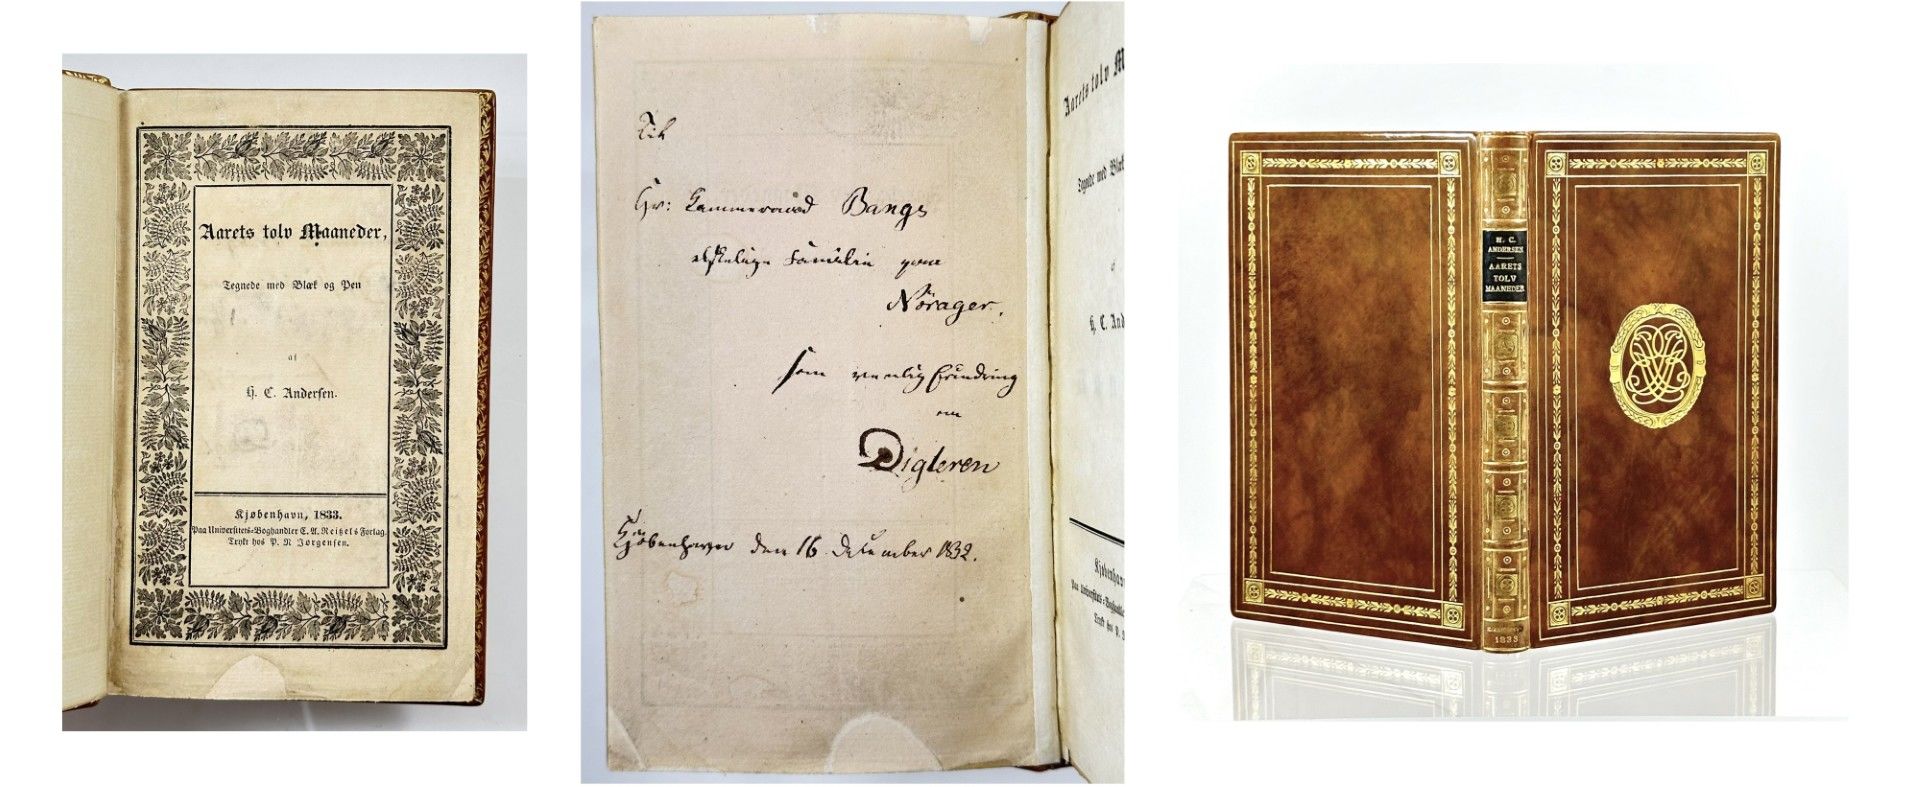 Aarets tolv Maaneder,
Tegnede med Blæk og Pen
af
H. C. Andersen.
Kjøbenhavn, 1833.
Paa Universitets-Boghandler C. A. Reitzels Forlag.
Trykt hos P. N. Jørgensen.
Til
Hr: Kammerraad Bangs
elskelige Familie paa
Nörager,
som venlig Erindring
om
Digteren
Kjöbenhavn den 16 December 1832.
Aarets tolv M
Tegnede med Blæk
af
H. C. And
Kjøbenhav
Paa Universitets-Boghandle
Trykt hos P.
H. C.
ANDERSEN
AARETS
TOLV
MAANEDER
1833